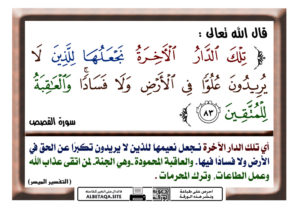 قال الله تعالى :
﴿ تِلْكَ الدَّارُ الْآخِرَةُ نَجْعَلُهَا لِلَّذِينَ لَا
يُرِيدُونَ عُلُوًّا فِي الْأَرْضِ وَلَا فَسَادًا ۚ وَالْعَاقِبَةُ
لِلْمُتَّقِينَ ﴿٨٣﴾
سورة القصص
أي تلك الدار الآخرة نجعل نعيمها للذين لا يريدون تكبرًا عن الحق في
الأرض ولا فسادًا فيها. والعاقبة المحمودة -وهي الجنة- لمن اتقى عذاب الله
وعمل الطاعات، وترك المحرمات .
(التفسير الميسر)
احرص على طباعة
ونشر هذه
ALBETAQA.SITE